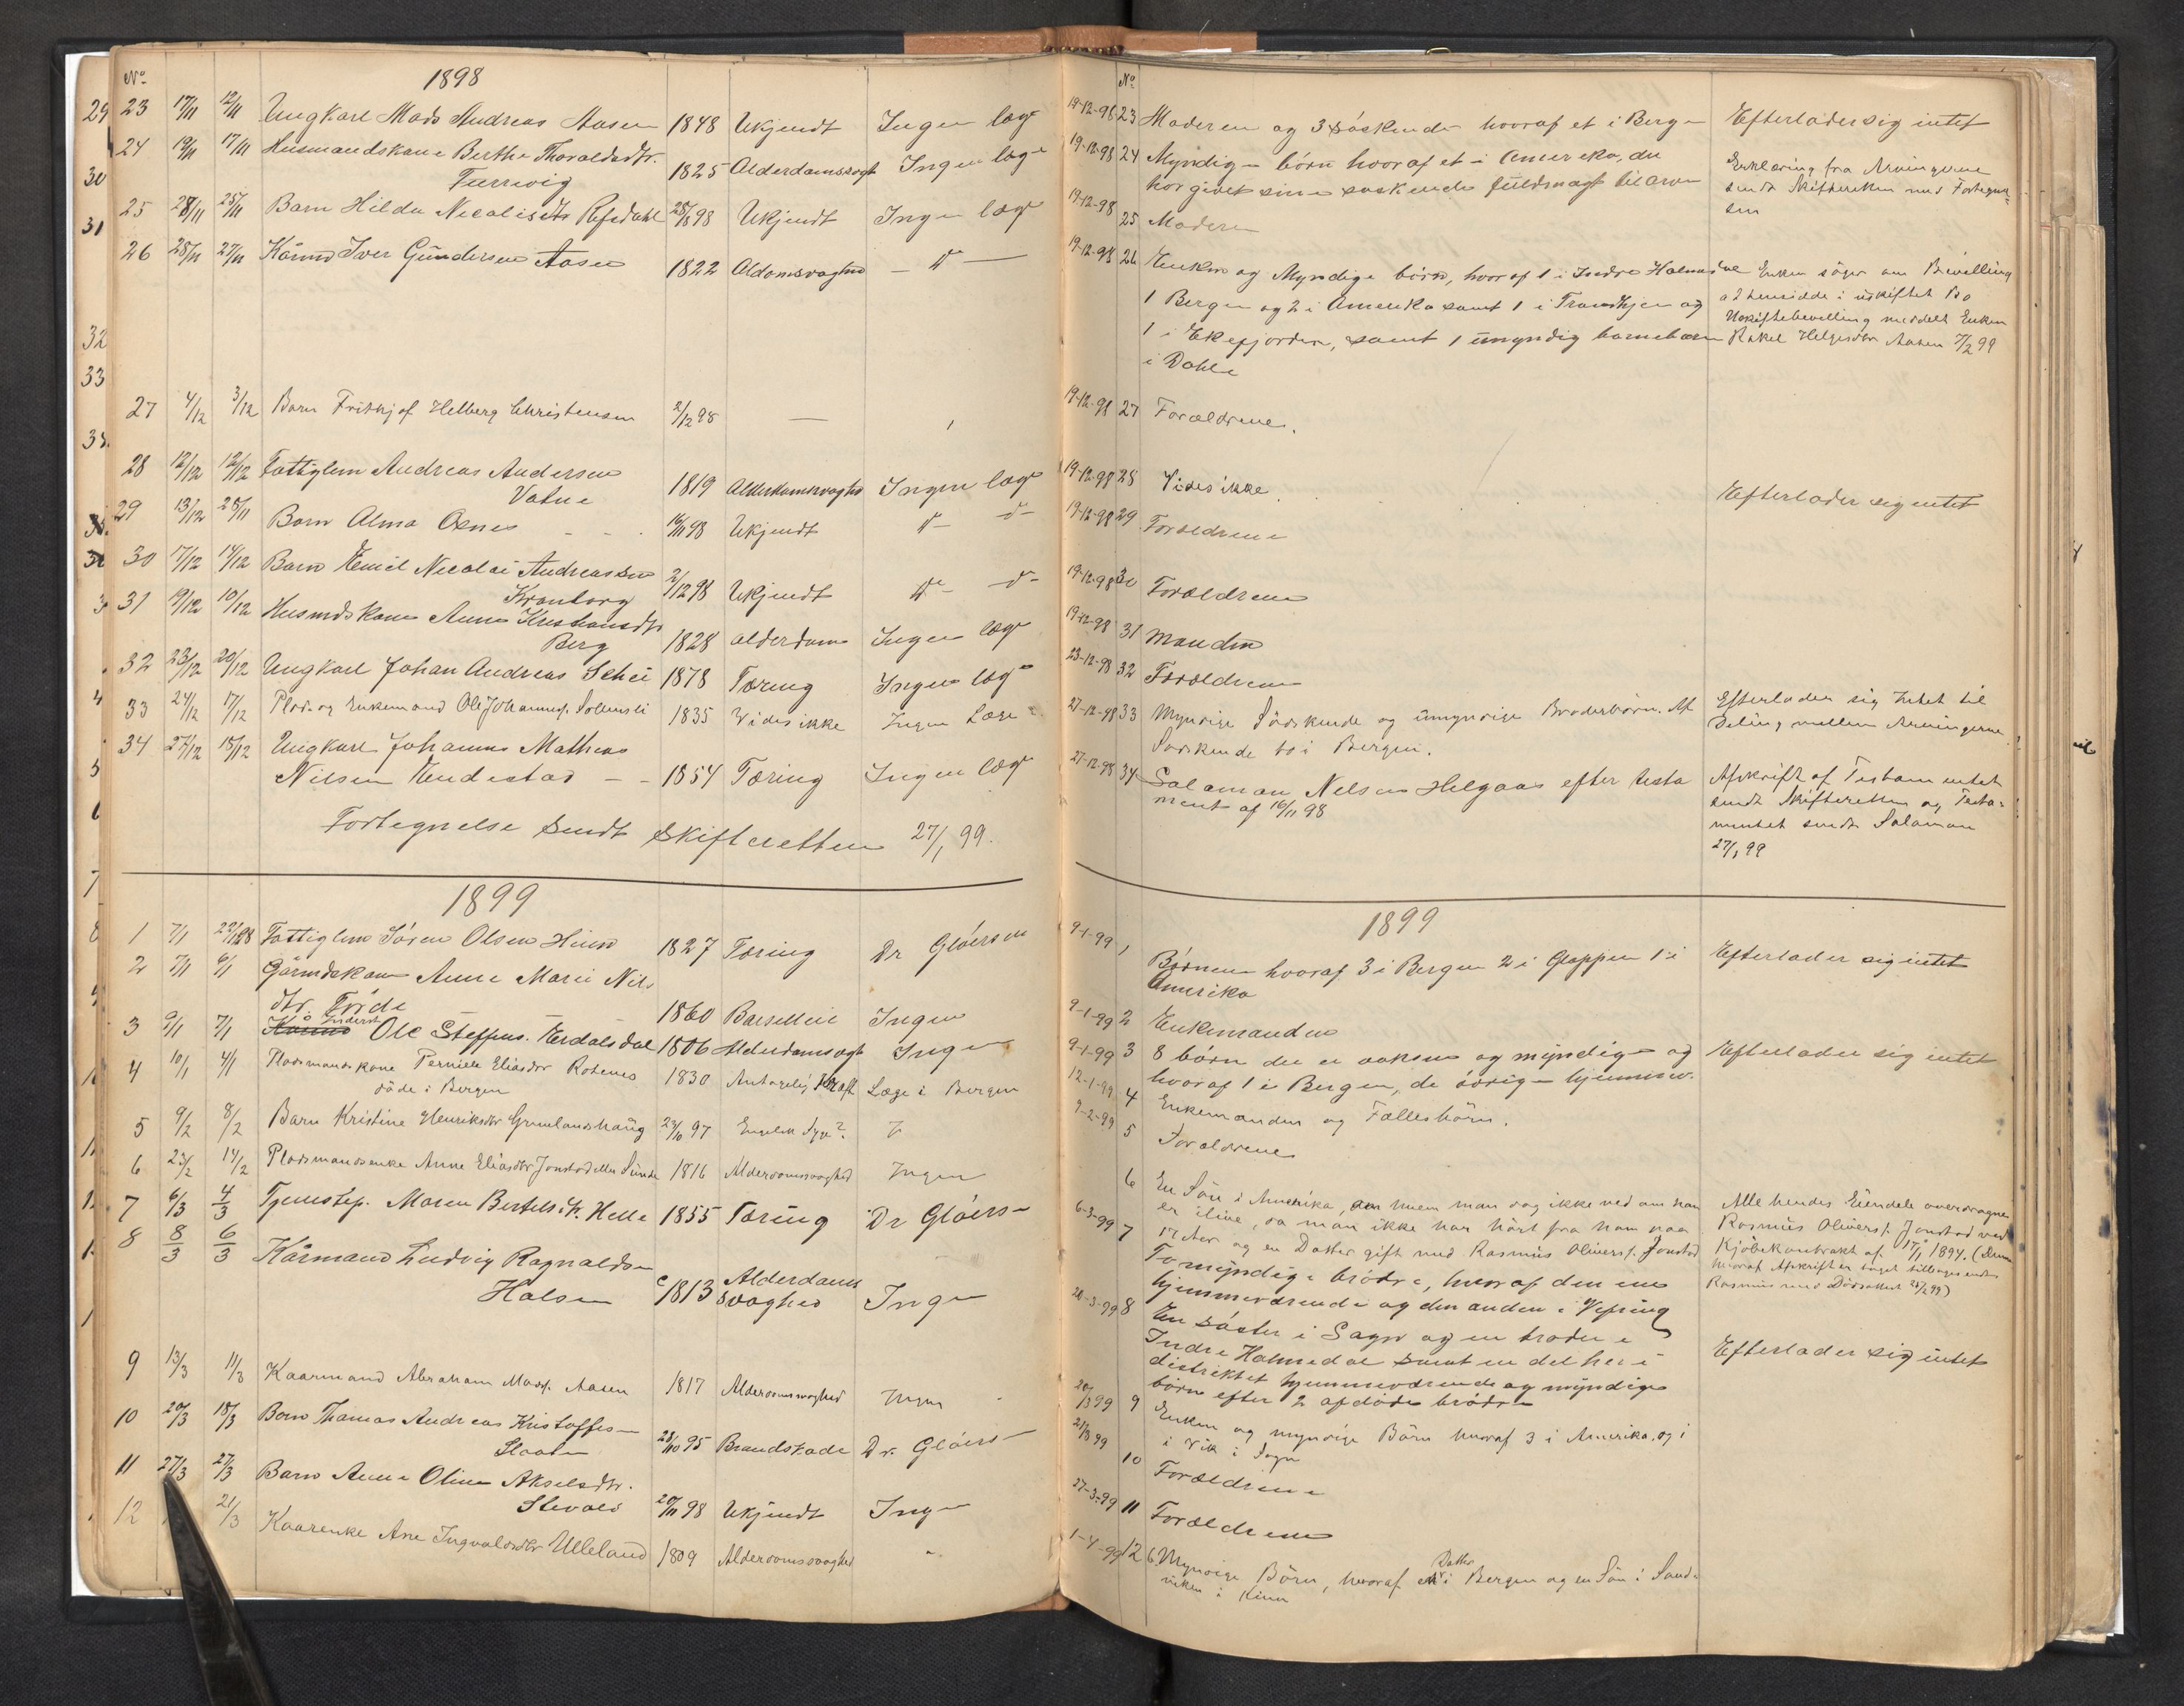 No
1898
23 17/11 12/11 Ungkarl Mads Andreas Aasen 1848 Ukjendt Ingen læge
24 19/11 17/11 Husmandskone Berthe Thoraldsdtr.
Furevig 1825 Alderdomsvagh Ingen læge
25 28/11 25/11 Barn Hilda Nicolisdtr Refsdahl 25/8 98 Ukjendt Ingen læge
26 28/11 27/11 Kårmd Iver Gundersen Aasen 1822 Aldomsvaghed — do —
27 4/12 3/12 Barn Frithjof Helberg Christensen 2/12 98 —
28 12/12 12/12 Fattiglem Andreas Andersen
Vatne 1819 Alderdomsvaghed Ingen læge
29 13/12 28/11 Barn Alma Oxnes 16/11 98 Ukjendt do do
30 17/12 14/12 Barn Emil Nicolai Andreassen
Kronborg 2/12 98 Ukjendt do do
31 19/12 10/12 Husmdskone Anne Kristiansdtr
Berg 1828 alderdom Ingen læge
32 23/12 20/12 Ungkarl Johan Andreas Schei 1878 Tæring Ingen læge
33 24/12 17/12 Plads og Enkemand Ole Johannes. Sollensli 1835 Vides ikke Ingen Læge
34 27/12 15/12 Ungkarl Johannes Mathias
Nilsen Endestad — 1854 Tæring Ingen læge
Fortegnelse sendt skifteretten 27/1 99.
1899
1 7/1 29/12 98 Fattiglem Sören Olsen Himo 1827 Tæring Dr Glóersen
2 7/1 6/1 Gårmdskone Anne Marie Nils
dtr. Frøde 1860 Barselleie Ingen
3 9/1 7/1 Inderst Ole Steffens. Erdalsdal 1806 Alderdomsvagh Ingen
4 10/1 4/1 Pladsmandskone Pernille Eliasdtr Rotenes
døde i Bergen 1830 Antagelig Kræft Læge i Bergen
5 9/2 8/2 Barn Kristine Henriksdtr Grimlandshaug 24/10 97 Engelsk Syge?
6 23/2 14/2 Pladsmandsenke Anne Eliasdtr Jonstad eller Sunde 1816 Alderdomsvaghed Ingen
7 6/3 4/3 Tjenestep. Maren Bertelsdtr. Helle 1855 Tæring Dr Glóers—
8 8/3 6/3 Kårmand Ludvig Ragnaldsen
Halsen 1813 Alderdoms
svaghed Ingen
9 13/3 11/3 Kaarmand Abraham Mads. Aasen 1817 Alderdomsvaghed Ingen
10 20/3 18/3 Barn Thomas Andreas Kristoffersen
28/10 95 Brandskade Dr. Glóers—
11 27/3 27/3 Barn Anne Oline Akselsdtr.
Stevold 20/11 98 Ukjendt Ingen
12 21/3 Kaarenke Ane Ingvaldsdtr Ulleland 1809 Alderdomsvaghed "
No
19-12-98 23 Moderen og 3 söskende hvoraf et i Bergen Efterlader sig intet
19-12-98 24 Myndige börn hvoraf et i Amerika, der
har givet sine söskende fuldmagt til arven Erklæring fra Arvingerne
sendt Skifteretten med Fortegnel-
sen
19-12-98 25 Moderen
19-12-98 26 Enken og Myndige börn, hvoraf 1 i Indre Holmedal
1 Bergen og 2 i Amerika samt 1 i Trondhjem og
1 i Eksefjorden, samt 1 umyndig barnebarn
i Dahle
Enken söger om Bevilling
at hensidde i uskiftet Bo
Uskiftebevilling meddelt Enken
Rakel Helgesdtr Aasen 7/2 99
19-12-98 27 Forældrene.
19-12-98 28 Vides ikke. Efterlader sig intet
19-12-98 29 Forældrene
19-12-98 30 Forældrene
19-12-98 31 Manden
23-12-98 32 Forældrene
27-12-98 33 Myndige Södskende og umyndige Broderbörn. Af
Södskende to i Bergen.
Efterlader sig Intet til
Deling mellem Arvingerne.
27-12-98 34 Salamon Nelsen Helgaas efter testa
ment af 16/11 98
Afskrift af Testamentet
sendt Skifteretten og Testa-
mentet sendt Salamon
27/1 99
1899
9-1-99 1 Börnene hvoraf 3 i Bergen 2 i Gloppen 1 i
Amerika
Efterlader sig intet
9-1-99 2 Enkemanden
9-1-99 3 8 börn der er voksne og myndige og
hvoraf 1 i Bergen, de övrige hjemmev.
Efterlader sig intet
12-1-99 4 Enkemanden og Fælles börn.
9-2-99 5 Forældrene
6 En Sön i Amerika, om hvem man dog ikke ved om han
er ilive, da man ikke har hört fra ham paa
17 Aar og en Datter gift med Rasmus Olivers. Jonstad
Alle hendes Eiendele overdragne
Rasmus Olivers. Jonstad ved
Kjöbekontrakt af 17/11 1894. (Denne
hvoraf Afskrift er taget tilbagesendt
Rasmus med Dödsattest 25/2 99)
6-3-99 7 To myndige brödre, hvoraf den ene
hjemmeværende og den anden i Vefring
20-3-99 8 En söster i Sogn og en broder i
Indre Holmedal samt en del her i
distriktet hjemmeværende og myndige
börn efter 2 afdöde brödre
Efterlader sig intet
20/3 99 9 Enken og myndige Börn hvoraf 3 i Amerika, og 1
i Vik i Sogn
21/3 99 10 Forældrene
27-3-99 11 Forældrene
1-4-99 12 6 Myndige Börn, hvoraf en Datter i Bergen og en Sön i Sand-
viken i Kinn